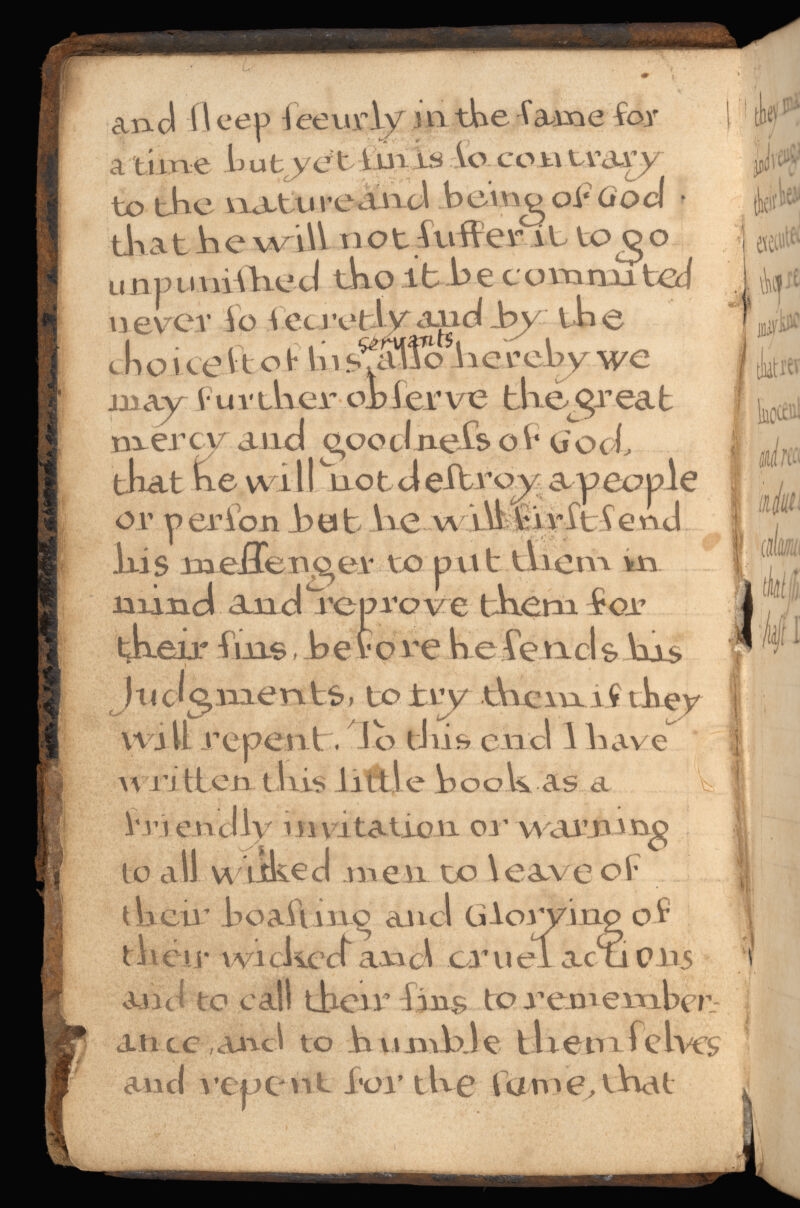 and ſleep ſeeurly in the ſame for
a time but yet ſin is ſo contrary
to the nature and being of God .
that he will not ſuffer it to go
unpuniſhed tho it be commited
never ſo ſecretly and by the
servants
choiceſt of his ‸ alſo hereby we
may further obſerve the great
mercy and goodneſs of God,
that he will not deſtroy a people
or perſon but he will firſt ſend
his meſſenger to put them in
mind and reprove them for
their ſins, before he ſends his
Judgments, to try them if they
will repent. To this end I have
written this little book as a
friendly invitation or warning
to all wiked men to leave of
their boaſting and Glorying of
their wicked and cruel actions
and to call their ſins to remember-
ance, and to humble themſelves
and repent for the ſame, that
they
and
their
executed
they
may
that
Inocent
and
in due
that
haſt